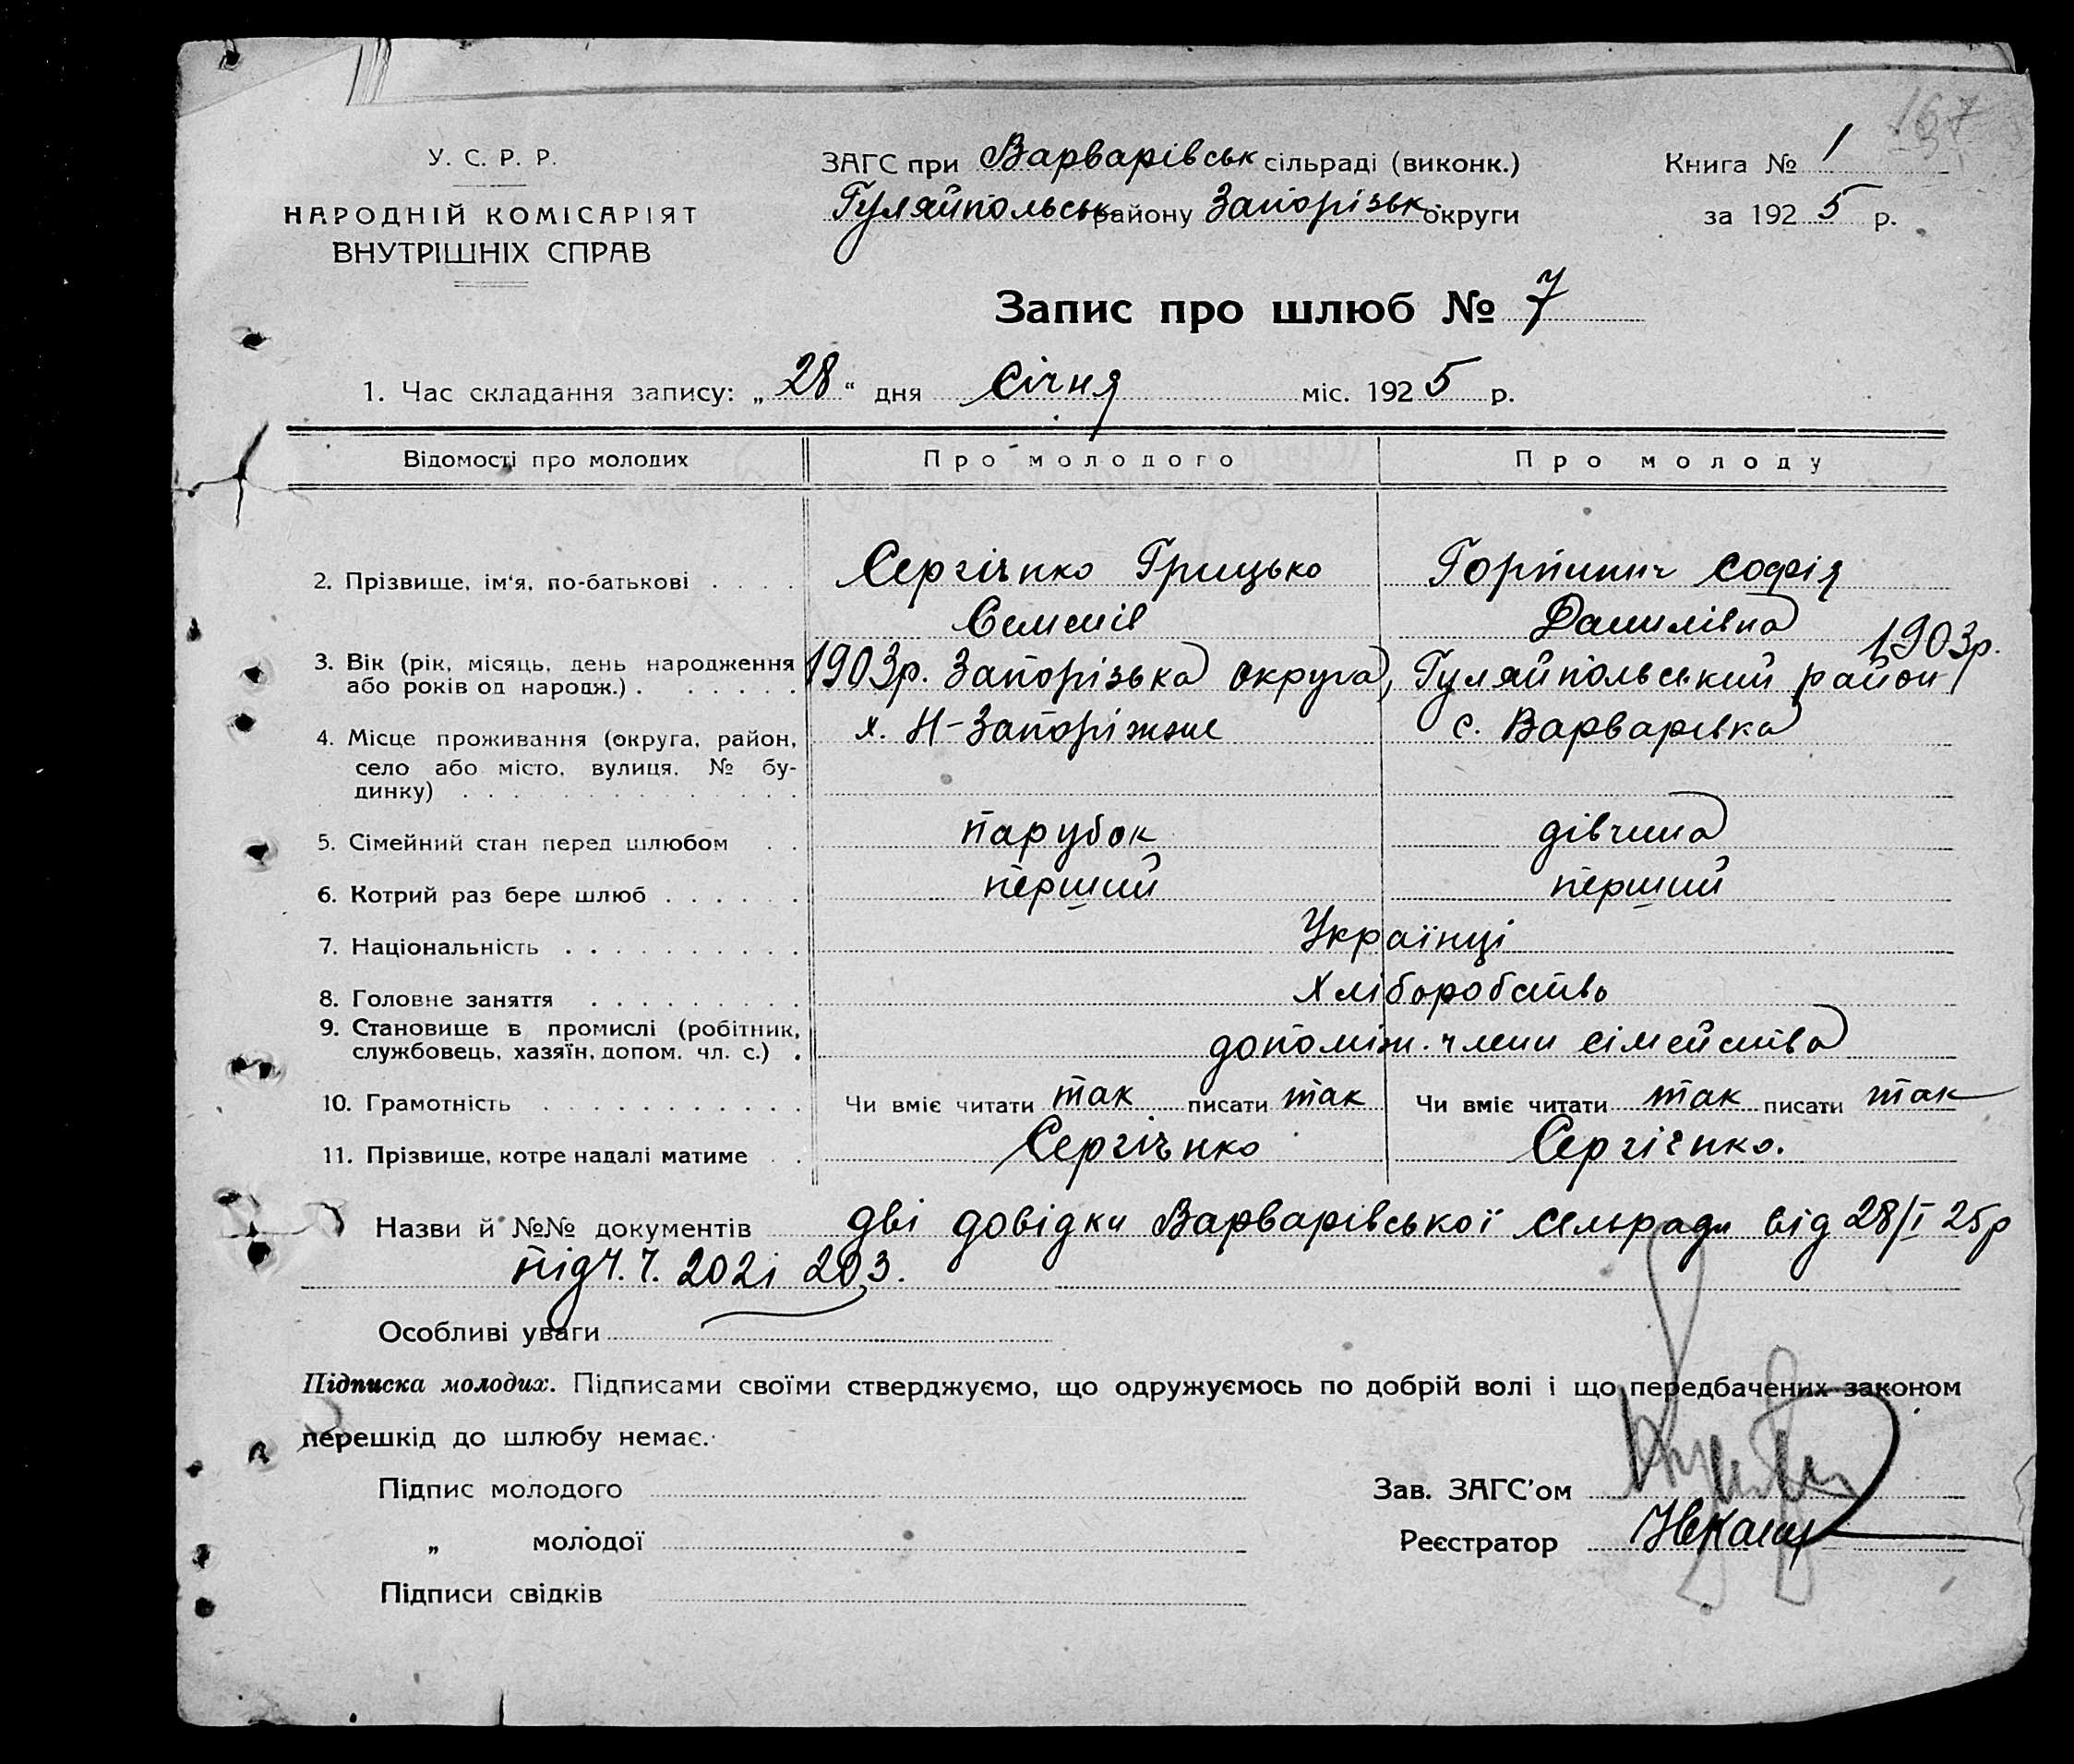 167
У. С. Р. Р.
НАРОДНІЙ КОМІСАРІЯТ
ВНУТРІШНІХ СПРАВ
ЗАГС при Варварівськ сільраді (виконк.)
Гуляйпольськ району Запорізьк округи
Книга № 1
за 1925 р.
Запис про шлюб № 7
1. Час складання запису: „28“ дня Січня міс. 1925 р.
Відомості про молодих Про молодого Про молоду
2. Прізвище, ім‘я, по-батькові . . . . Сергієнко Грицько Горпинич Софія
Семенів Данилівна
3. Вік (рік, місяць, день народження 1903р. 1903р.
або років од народж.) . . . . . . Запорізька округа, Гуляйпольський район
4. Місце проживання (округа, район, х. Н-Запоріжже с. Варварівка
село або місто, вулиця, № бу-
динку) . . . . . . . . . . . . . .
5. Сімейний стан перед шлюбом . . парубок дівчина
6. Котрий раз бере шлюб . . . . . . перший перший
7. Національність . . . . . . . . . . Українці
8. Головне заняття . . . . . . . . . Хліборобство
9. Становище в промислі (робітник,
службовець, хазяїн, допом. чл. с.) . допоміж. члени сімейства
10. Грамотність . . . . . . . . . . . Чи вміє читати так писати так Чи вміє читати так писати так
11. Прізвище, котре надалі матиме . . Сергієнко Сергієнко.
Назви й №№ документів дві довідки Варварівської сельради від 28/I 25р
під ч.ч. 202 і 203.
Особливі уваги
Підписка молодих. Підписами своїми стверджуємо, що одружуємось по добрій волі і що передбачених законом
перешкід до шлюбу немає.
Підпис молодого
„ молодої
Підписи свідків
Зав. ЗАГС’ом
Реєстратор